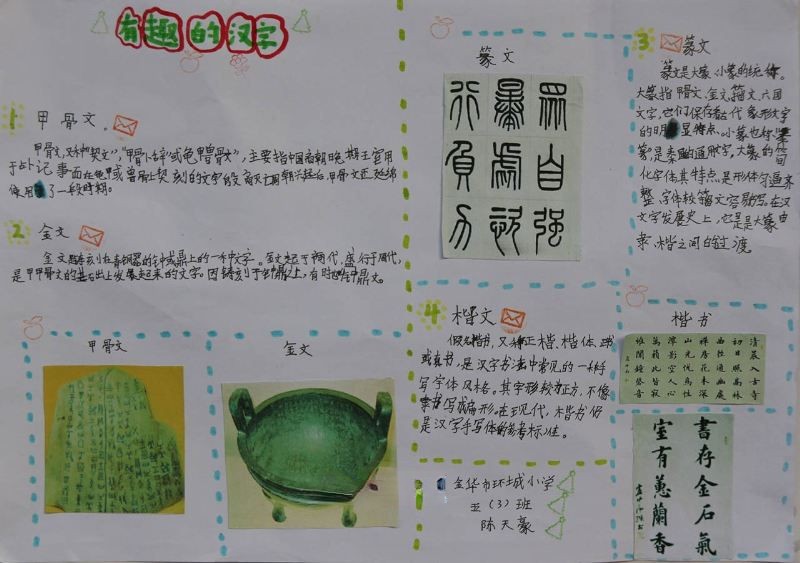 有趣的汉字
1 甲骨文。
甲骨文,又称"契文","甲骨卜辞"或龟甲兽骨文",主要指中国商朝晚期王室用
于占卜记事而在龟甲或兽骨上契刻的文字
甲骨文还延绵
使用了一段时期。
2 金文
金文是铸刻在青铜器的钟或鼎上的一种文字。金文起于商代,盛行于周代,
是甲骨文的基石出上发展起来的文字。因铸刻于钟鼎上,有时也称钟鼎文。
甲骨文
金文
篆文
3 篆文
篆文是大篆、小篆的统称。
大篆指甲骨文、金文、籀文、六国
文字,它们保存着古代象形文字
的明显特点。小篆也称"秦
篆",是秦国的通用文字,大篆的简
化字体,其特点是形体匀逼齐
整、字体较籀文容易写。在汉
文字发展史上,它是大篆由
隶、楷之间的过渡。
4 楷文
又称正楷、楷体、
或真书,是汉字书法中常见的一种手
写字体风格。其字形较为正方,不像
隶书写成扁形。在现代,楷书仍
是汉字手写体的参考标准。
金华市环城小学
五(3)班
陈天豪
楷书
清晨入古寺
初日照高林
曲径通幽处
禅房花木深
山光悦鸟性
潭影空人心
万籁此皆寂
惟闻钟磬音
書存金石氣
室有蕙蘭香